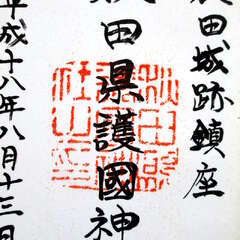 田城跡鎮座
田県護國神
平成十八年八月十三日
秋田縣
社之印